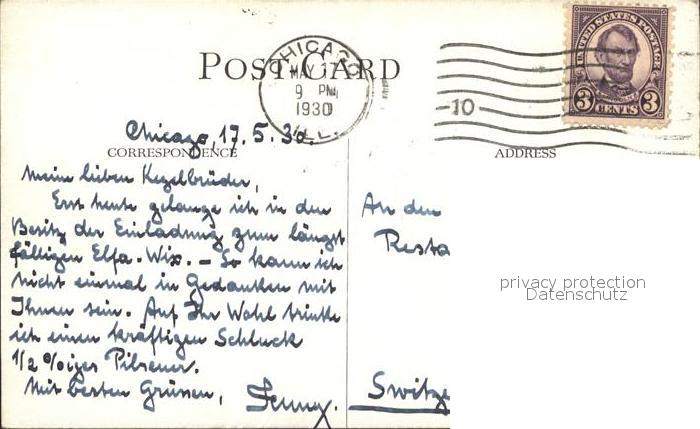 POST CARD
CHICAGO
MAY 17
9 PM
1930
ILL.
10
UNITED STATES POSTAGE
3 CENTS 3
Chicago, 17.5.30.
CORRESPONDENCE
ADDRESS
Meine lieben Kegelbrüder,
Erst heute gelange ich in den
Besitz der Einladung zum längst
fälligen Elfa-Wix. – So kann ich
nicht einmal in Gedanken mit
Ihnen sein. Auf Ihr Wohl trinke
ich einen kräftigen Schluck
1/2 %iges Pilsener.
Mit besten Grüssen,
An den
Resta
Switze
privacy protection
Datenschutz